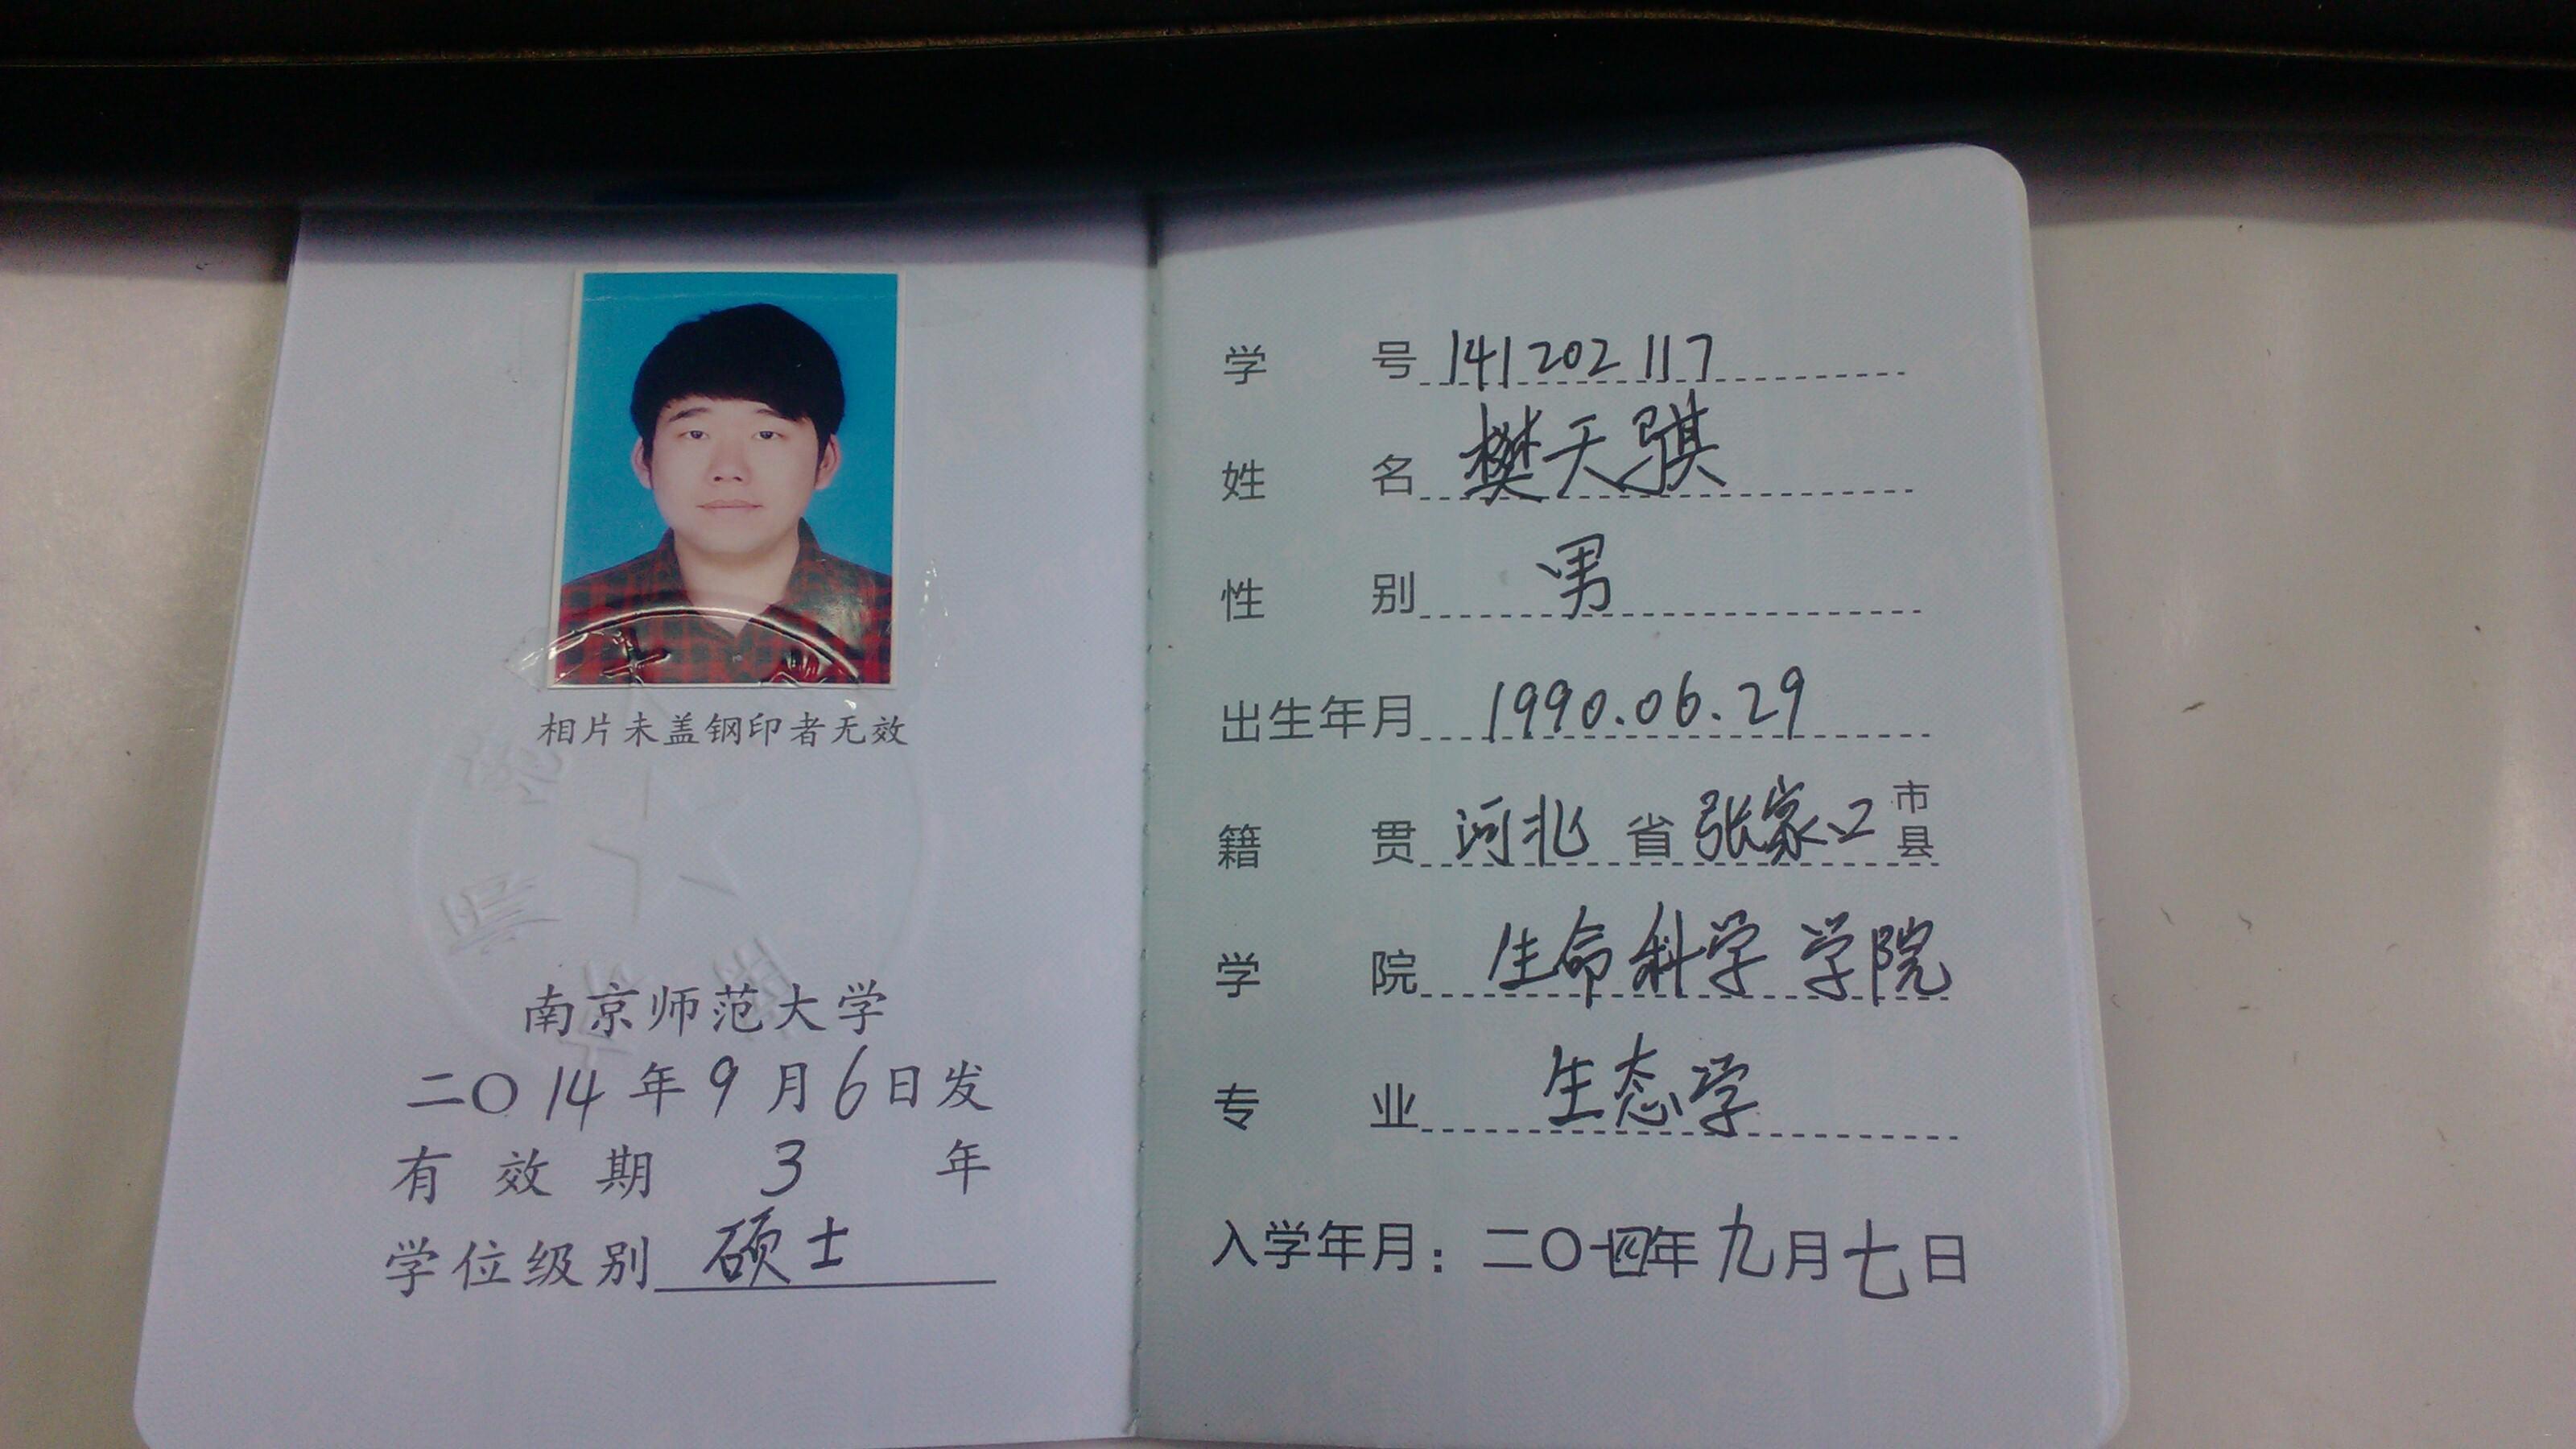 相片未盖钢印者无效
南京师范大学
二〇14年9月6日发
有效期 3 年
学位级别 硕士
学号 141202117
姓名 樊天骐
性别 男
出生年月 1990.06.29
籍贯 河北 省 张家口 市县
学院 生命科学学院
专业 生态学
入学年月：二〇一四年九月七日